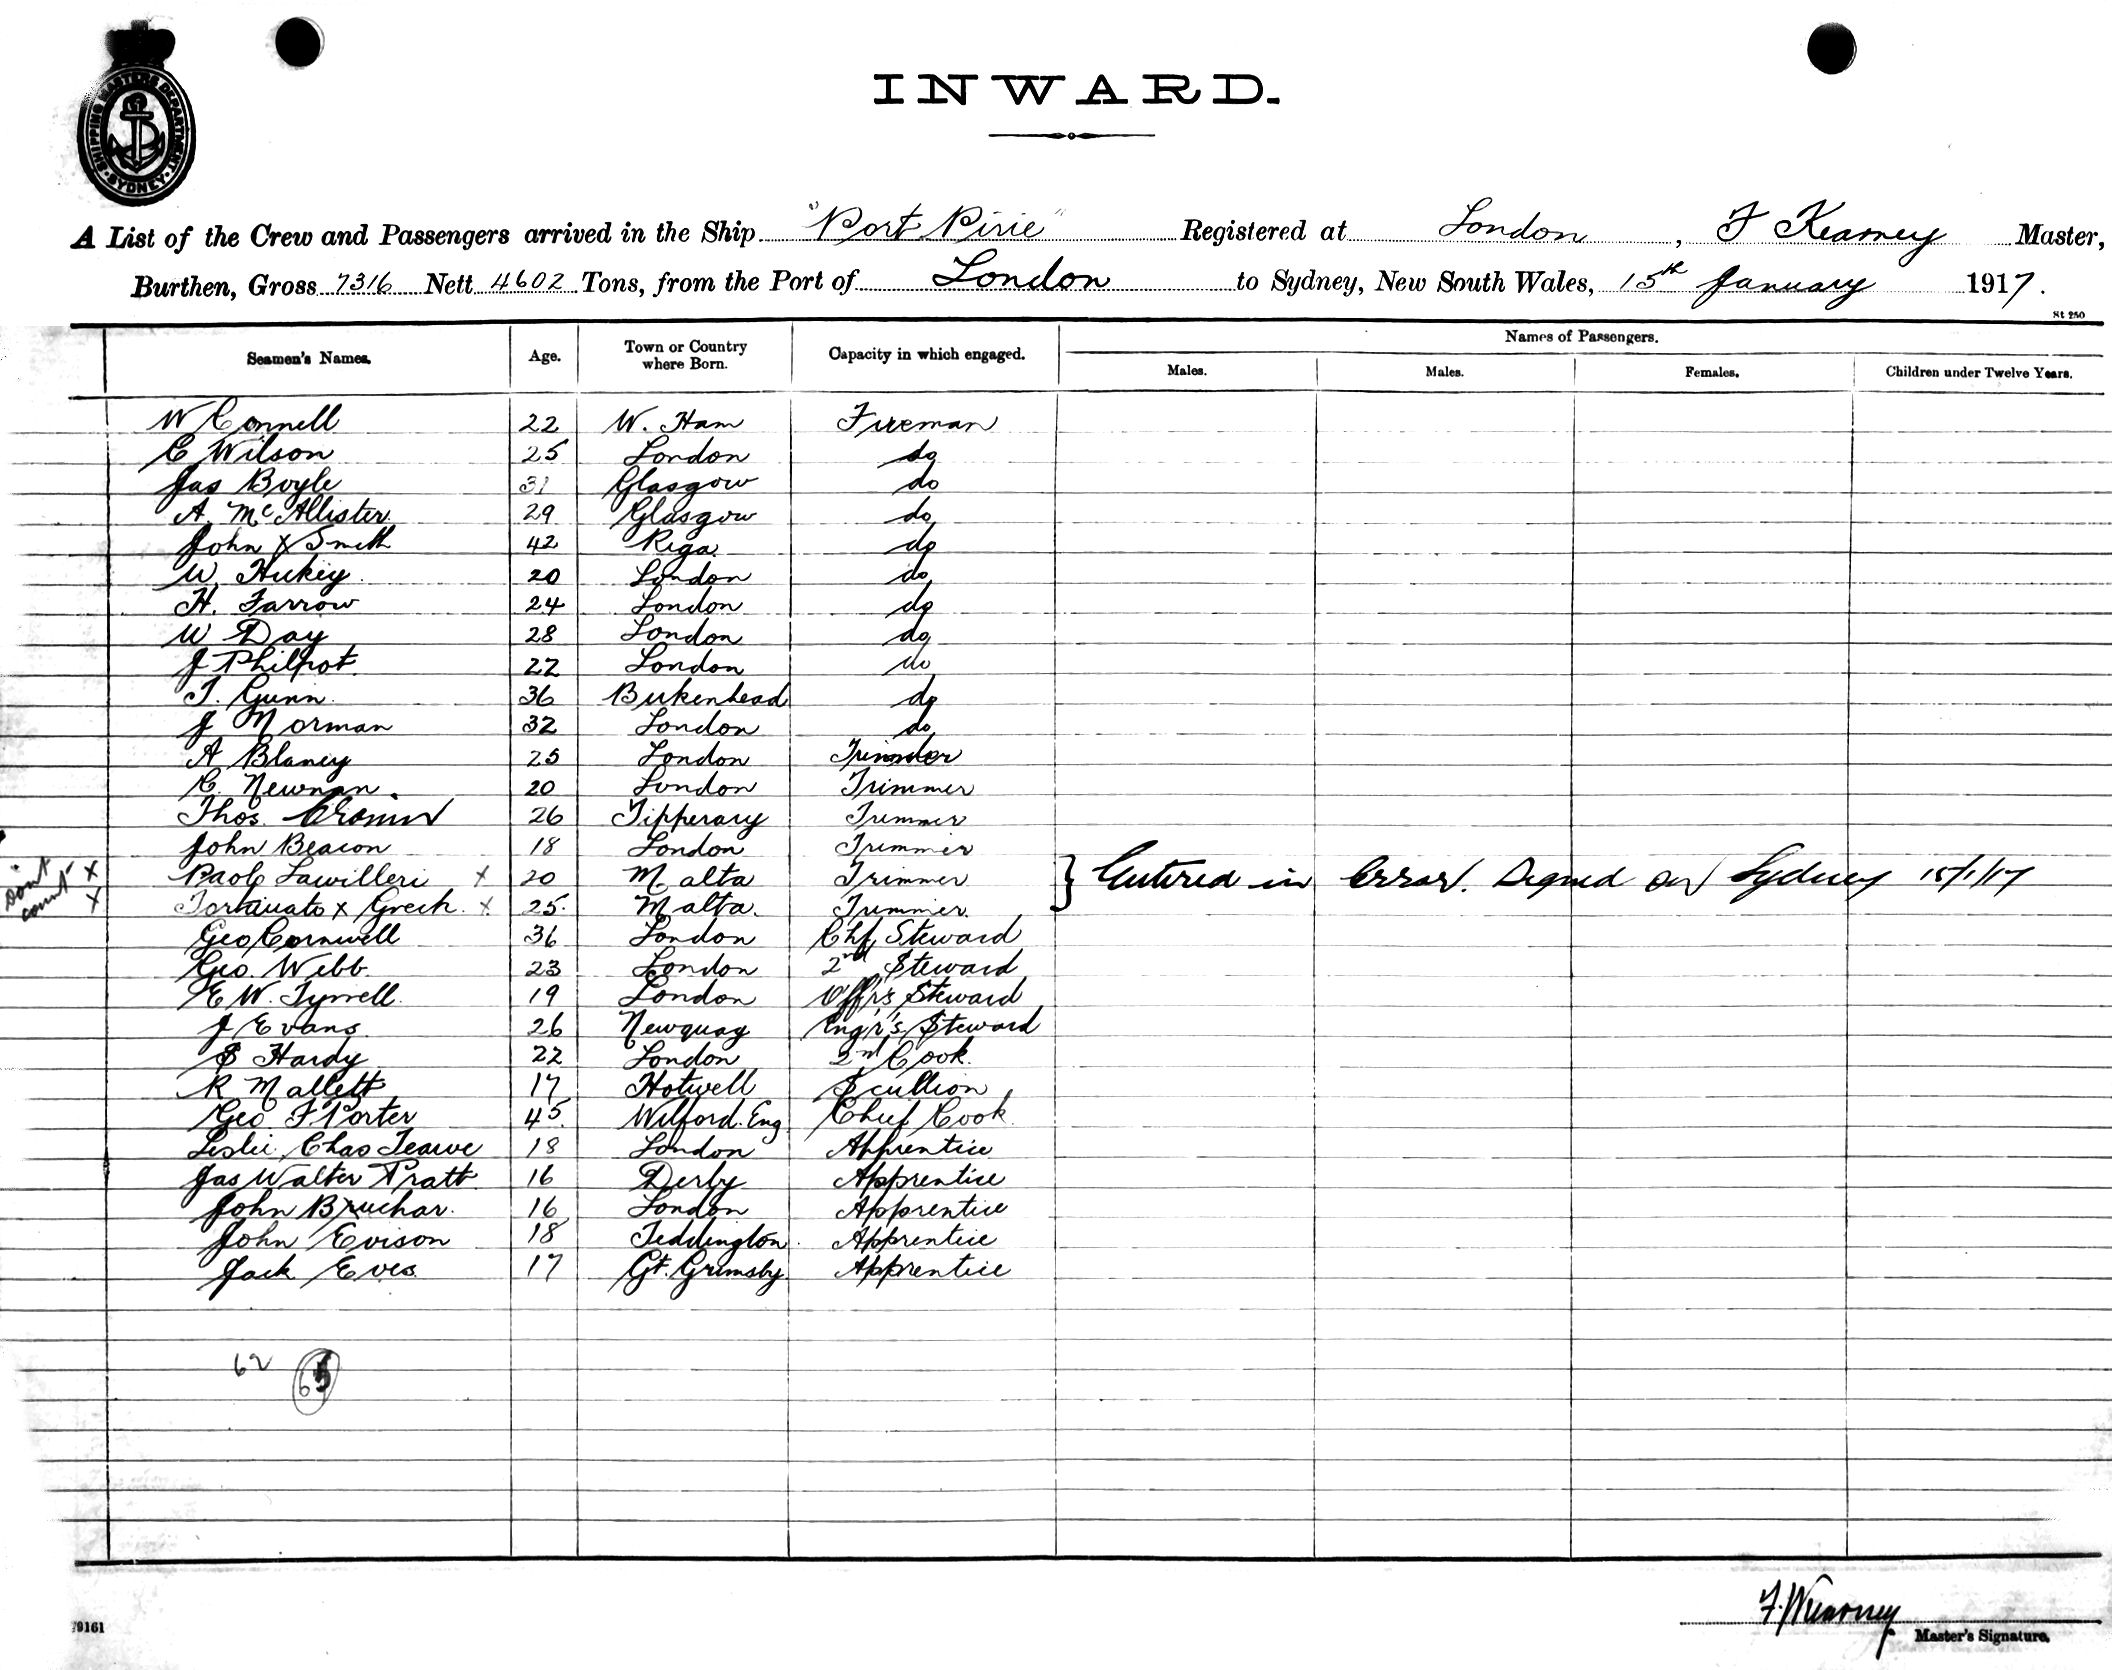 SHIPPING MASTERS DEPARTMENT · SYDNEY ·
INWARD.
A List of the Crew and Passengers arrived in the Ship "Port Pirie" Registered at London, F Kearney Master,
Burthen, Gross 7316 Nett 4602 Tons, from the Port of London to Sydney, New South Wales, 15th January 1917.
St 250
Seamen's Names. Age. Town or Country where Born. Capacity in which engaged. Names of Passengers.
Males. Males. Females. Children under Twelve Years.
W Connell 22 W. Ham Fireman
C Wilson 25 London do
Jas Boyle 31 Glasgow do
A. McAllister 29 Glasgow do
John X Smith 42 Riga do
W. Hickey 20 London do
H. Farrow 24 London do
W Day 28 London do
J Philpot 22 London do
T. Gunn 36 Birkenhead do
J Norman 32 London do
A Blaney 25 London
C. Newman 20 London Trimmer
Thos. Cronin 26 Tipperary Trimmer
John Beacon 18 London Trimmer
Dont count X Paolo X 20 Malta Trimmer } Entered in Error. Signed on Sydney 15/1/17
X Fortunato x Grech. X 25. Malta. Trimmer.
Geo Cornwell 36 London Chf Steward
Geo. Webb 23 London 2nd Steward
E W. Tyrrell 19 London Offr's Steward
J Evans 26 Newquay Engr's Steward
S Hardy 22 London 2nd Cook
R Mallett 17 Hotwell Scullion
Geo F Porter 45 Wilford. Eng Chief Cook
Leslie Chas 18 London Apprentice
Jas Walter Pratt 16 Derby Apprentice
John 16 London Apprentice
John Evison 18 Teddington Apprentice
Jack Eves 17 Gt. Grimsby Apprentice
62
F. W Kearney
Master's Signature.
79161